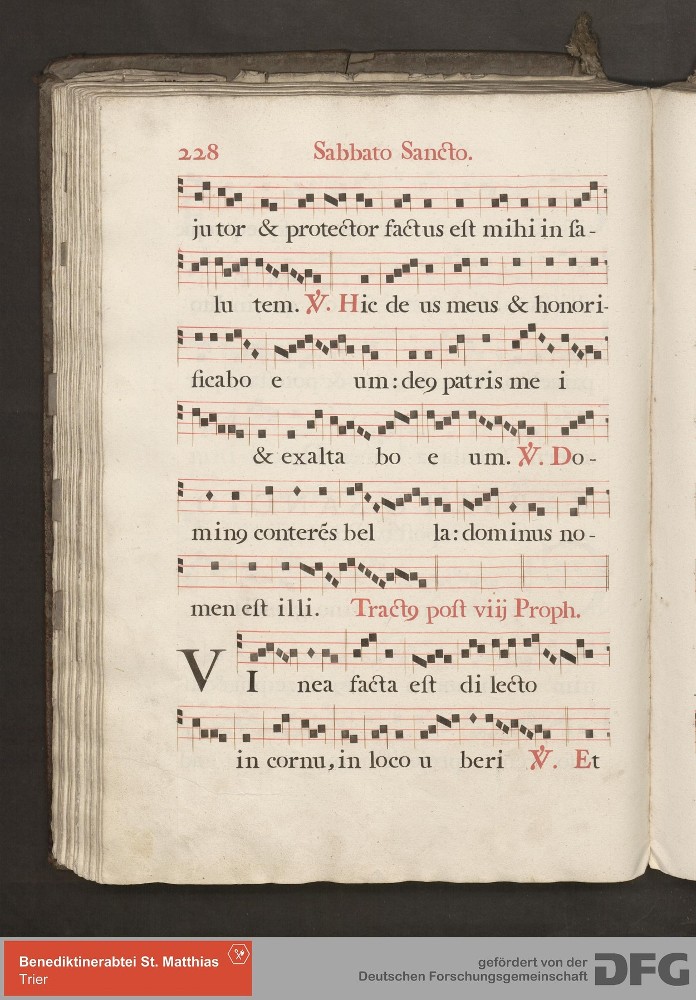 228 Sabbato Sancto.
ju tor & protector factus eſt mihi in ſa-
lu tem. ℣. Hic de us meus & honori-
ficabo e um: deꝯ patris me i
& exalta bo e um. ℣. Do-
minꝯ conterẽs bel la: dominus no-
men eſt illi. Tractꝯ poſt viij Proph.
VI nea facta eſt di lecto
in cornu, in loco u beri ℣. Et
Benediktinerabtei St. Matthias
Trier
gefördert von der
Deutschen Forschungsgemeinschaft DFG